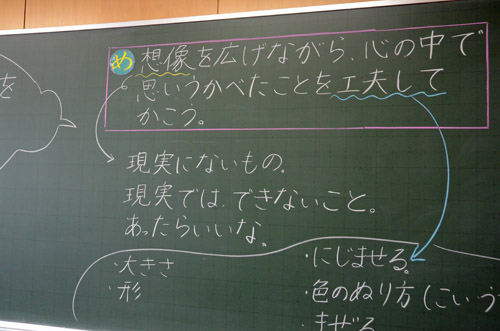 を
め 想像を広げながら、心の中で
思いうかべたことを工夫して
かこう。
現実にないもの。
現実では、できないこと。
あったらいいな。
・大きさ
・形
・にじませる。
・色のぬり方(こいう
まぜる